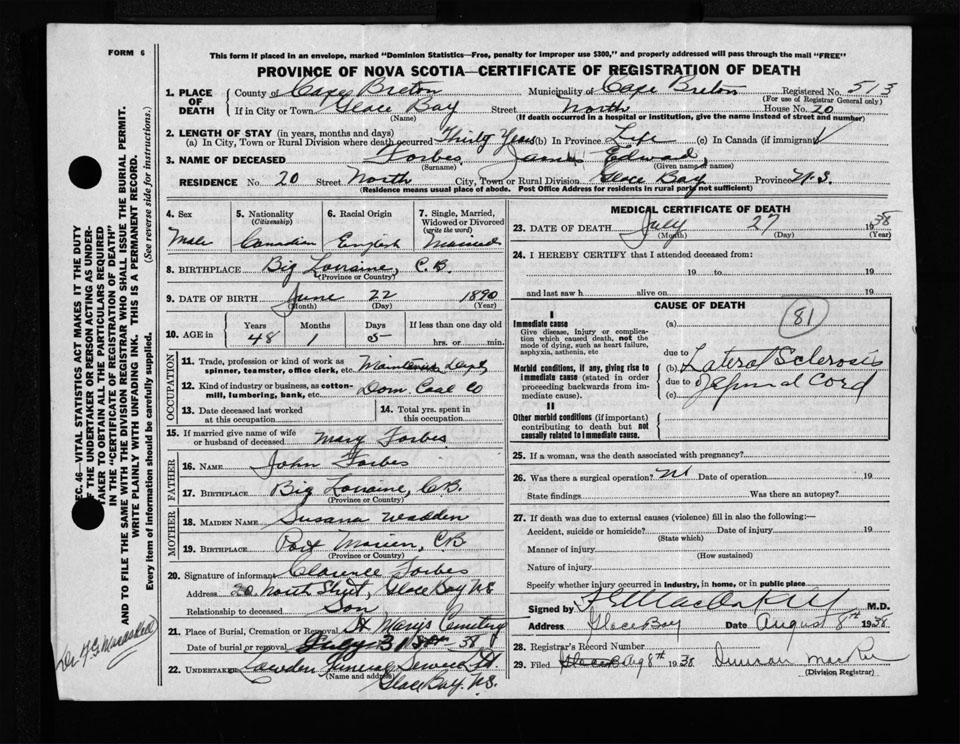 FORM 6
This form if placed in an envelope, marked "Dominion Statistics—Free, penalty for improper use $300," and properly addressed will pass through the mail "FREE"
PROVINCE OF NOVA SCOTIA—CERTIFICATE OF REGISTRATION OF DEATH
1. PLACE OF DEATH
County of Cape Breton Municipality of Cape Breton Registered No. 513
(For use of Registrar General only)
If in City or Town Glace Bay Street North House No. 20
(Name) (If death occurred in a hospital or institution, give the name instead of street and number)
2. LENGTH OF STAY (in years, months and days)
(a) In City, Town or Rural Division where death occurred Thirty Years (b) In Province Life (c) In Canada (if immigrant)
3. NAME OF DECEASED Forbes, James Edward,
(Surname) (Given name or names)
RESIDENCE No. 20 Street North City, Town or Rural Division Glace Bay Province N.S.
(Residence means usual place of abode. Post Office Address for residents in rural parts not sufficient)
4. Sex 5. Nationality (Citizenship) 6. Racial Origin 7. Single, Married, Widowed or Divorced (write the word)
Male Canadian English Married
8. BIRTHPLACE Big Lorraine, C.B.
(Province or Country)
9. DATE OF BIRTH June 22 1890
(Month) (Day) (Year)
10. AGE in Years Months Days If less than one day old
48 1 5 hrs. or min.
OCCUPATION
11. Trade, profession or kind of work as spinner, teamster, office clerk, etc. Dept
12. Kind of industry or business, as cotton-mill, lumbering, bank, etc. Dom Coal Co
13. Date deceased last worked at this occupation 14. Total yrs. spent in this occupation
15. If married give name of wife or husband of deceased Mary Forbes
FATHER
16. NAME John Forbes
17. BIRTHPLACE Big Lorraine, C.B.
(Province or Country)
MOTHER
18. MAIDEN NAME Susana Wadden
19. BIRTHPLACE Port Morien, C.B
(Province or Country)
20. Signature of informant Clarence Forbes
Address 20 North Street, Glace Bay N.S
Relationship to deceased Son
21. Place of Burial, Cremation or Removal St Marys Cemetery
Date of burial or removal July 38
22. UNDERTAKER Funeral Service
(Name and address)
Glace Bay. N.S.
MEDICAL CERTIFICATE OF DEATH
23. DATE OF DEATH July 27 1938
(Month) (Day) (Year)
24. I HEREBY CERTIFY that I attended deceased from:
19 to 19
and last saw h alive on 19
CAUSE OF DEATH
I
Immediate cause (a) 81
Give disease, injury or complication which caused death, not the mode of dying, such as heart failure, asphyxia, asthenia, etc
due to
Morbid conditions, if any, giving rise to immediate cause (stated in order proceeding backwards from immediate cause).
(b) Lateral Sclerosis
due to
(c) Spinal Cord
II
Other morbid conditions (if important) contributing to death but not causally related to immediate cause.
25. If a woman, was the death associated with pregnancy?
26. Was there a surgical operation? Date of operation 19
State findings Was there an autopsy?
27. If death was due to external causes (violence) fill in also the following:—
Accident, suicide or homicide? Date of injury 19
(State which)
Manner of injury
(How sustained)
Nature of injury
Specify whether injury occurred in industry, in home, or in public place
Signed by M.D.
Address Glace Bay Date August 8th 1938
28. Registrar's Record Number
29. Filed Aug 8th 1938 Duncan
(Division Registrar)
SEC. 46—VITAL STATISTICS ACT MAKES IT THE DUTY
OF THE UNDERTAKER OR PERSON ACTING AS UNDER-
TAKER TO OBTAIN ALL THE PARTICULARS REQUIRED
IN THE "CERTIFICATE OF REGISTRATION OF DEATH"
AND TO FILE THE SAME WITH THE DIVISION REGISTRAR WHO SHALL ISSUE THE BURIAL PERMIT.
WRITE PLAINLY WITH UNFADING INK. THIS IS A PERMANENT RECORD.
Every item of information should be carefully supplied. (See reverse side for instructions.)